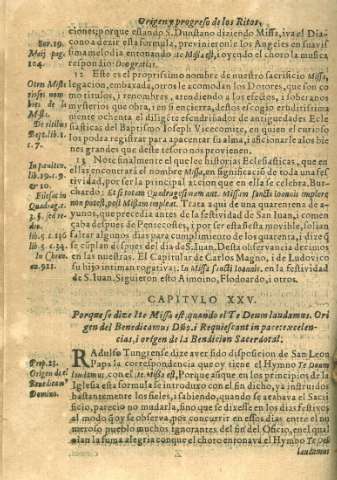 Origen, y progreso de los Ritos,
ciones; porque estando S. Dunstano diziendo Missa, iva el Dia-
cono a dezir esta formula, previnieronle los Angeles en suavis-
sima melodia entonando: Ite Missa est, i oyendo el choro la musica
respondio: Deo gratias.
12 Este es el proprissimo nombre de nuestro sacrificio Missa,
legacion, embaxada, otros le acomodan los Dotores, que son co
mo titulos, i renombres, atendiendo a los efectos, i soberanos
mysterios que obra, i en si encierra, destos escogio eruditissima
mente ochenta el diligente escudriñador de antiguedades Eccle
siasticas del Baptismo Joseph Vicecomite, en quien el curioso
los podra registrar para apacentar su alma, i aficionarle a los bie
nes grandes que deste tesoro nos provienen.
13 Note finalmente el que lee historias Eclesiasticas, que en
ellas encontrarà el nombre Missa, en significacion de toda una fes
tividad, por ser la principal accion que en ella se celebra. Bur-
chardo: Et si totam Quadragesimam ante Missam sancti Ioannis implere
non potest, post Missam impleat. Trata aqui de una quarentena de a-
yunos, que precedia antes de la festividad de San Iuan, i comen
çaba despues de Pentecostes, i por ser esta fiesta movible, solian
faltar algunos dias para cumplimiento de los quarenta, i dize q̃
se cũplan despues del dia de S. Iuan. Desta observancia dezimos
en las nuestras. El Capitular de Carlos Magno, i de Ludovico
su hijo intiman rogativas: In Missa sancti Ioannis. en la festividad
de S. Iuan. Siguieron esto Aimoino, Flodoardo, i otros.
CAPITULO XXV.
Porque se dize Ite Missa est, quando el Te Deum laudamus. Ori
gen del Benedicamus Dño, i Requiescant in pace: excelen-
cias, i origen de la Bendicion Sacerdotal.
RAdulfo Tungrense dize aver sido disposicion de San Leon
Papa la correspondencia que oy tiene el Hymno Te Deum
laudamus, con el Ite Missa est, Porque aunque en los principios de la
Iglesia esta formula se introduxo con el sin dicho, ya instruidos
bastantemente los fieles, i sabiendo, quando se acababa el Sacri
ficio, parecio no mudarla, sino que se dixesse en los dias festivos
al modo que oy se observa, por concurrir en essos dias entre el nu
meroso pueblo muchos ignorantes del fin del Oficio, en el qual
alan la suma alegria con que el choro entonava el Hymno Te Deũ
X
laudamus
Sur. 19.
Maij. pag.
204.
Otros Miste
riosos nom
bres de la
Missa.
De ritibus
Bapt. lib. 1.
c. 7.
In pœniten.
lib. 19. c. 9.
& 10.
Quadrag. c.
lib. 5. c. 136
lib. 5. c. 34.
In Chron.
an. 921.
Prop. 23.
Origen de el
Benedicam9
Domino.